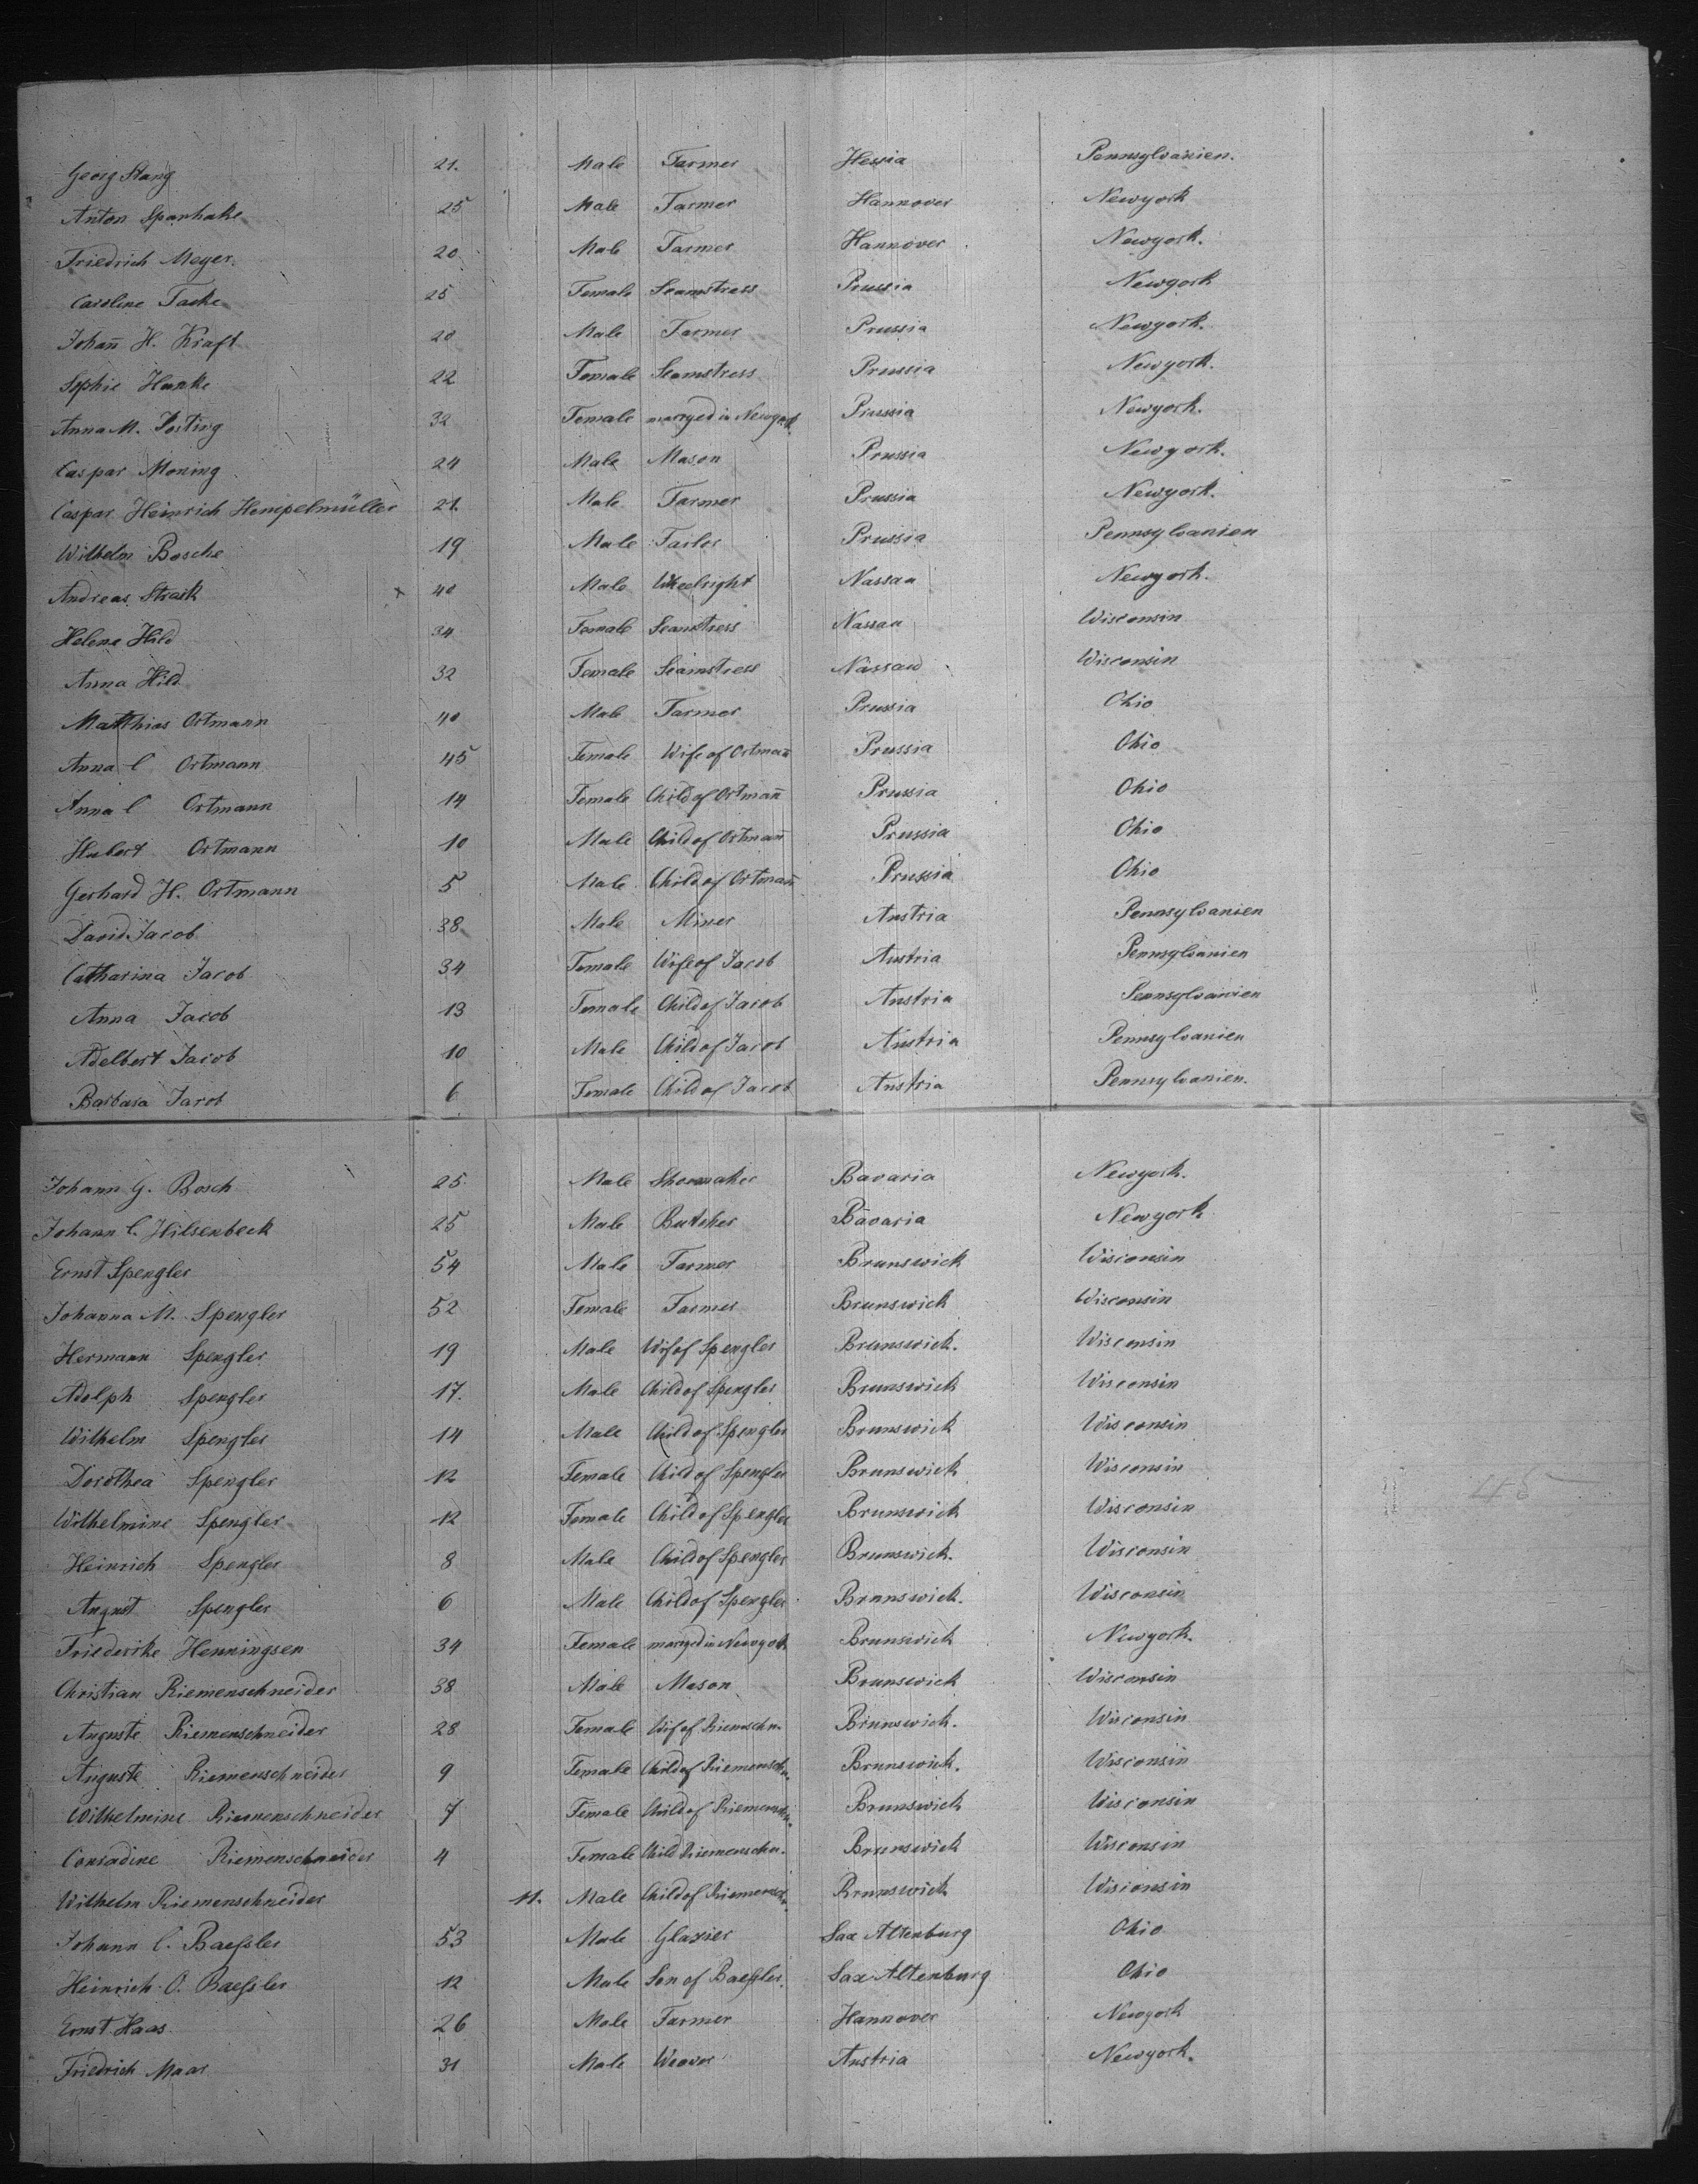 Georg Stang 21. Male Farmer Hessia Pennsylvanien.
Anton Sparhake 25 Male Farmer Hannover Newyork
Friedrich Meyer. 20 Male Farmer Hannover Newyork.
Caroline Tacke 25 Female Seamstress Prussia Newyork
Johan̄ H. Kraft 20 Male Farmer Prussia Newyork.
Sophie Hanke 22 Female Seamstress Prussia Newyork.
Anna M. 32 Female marryed in Newyork. Prussia Newyork.
Caspar Moning 24 Male Mason Prussia Newyork.
Caspar Heinrich Hempelmüller 21. Male Farmer Prussia Newyork.
Wilhelm Bosche 19 Male Tailor Prussia Pennsylvanien
Andreas x 40 Male Wheelright Nassau Newyork.
Helene Hild 34 Female Seamstress Nassau Wisconsin
Anna Hild 32 Female Seamstress Nassau Wisconsin
Matthias Ortmann 40 Male Farmer Prussia Ohio
Anna C Ortmann 45 Female Wife of Ortman̄ Prussia Ohio
Anna C Ortmann 14 Female Child of Ortman̄ Prussia Ohio
Hubert Ortmann 10 Male Child of Ortman̄ Prussia Ohio
Gerhard H. Ortmann 5 Male Child of Ortman̄ Prussia Ohio
David Jacob 38 Male Miner Austria Pennsylvanien
Catharina Jacob 34 Female Wife of Jacob Austria Pennsylvanien
Anna Jacob 13 Female Child of Jacob Austria Pennsylvanien
Adelbert Jacob 10 Male Child of Jacob Austria Pennsylvanien
Barbara Jacob 6 Female Child of Jacob Austria Pennsylvanien.
Johann G. Bosch 25 Male Shoemaker Bavaria Newyork.
Johann C. Hilsenbeck 25 Male Butcher Bavaria Newyork
Ernst Spengler 54 Male Farmer Brunswick Wisconsin
Johanna M. Spengler 52 Female Farmer Brunswick Wisconsin
Hermann Spengler 19 Male Wif of Spengler Brunswick. Wisconsin
Adolph Spengler 17. Male Child of Spengler Brunswick Wisconsin
Wilhelm Spengler 14 Male Child of Spengler Brunswick Wisconsin
Dorothea Spengler 12 Female Child of Spengler Brunswick Wisconsin
Wilhelmine Spengler 12 Female Child of Spengler Brunswick Wisconsin
Heinrich Spengler 8 Male Child of Spengler Brunswick. Wisconsin
August Spengler 6 Male Child of Spengler Brunswick. Wisconsin
Friederike Henningsen 34 Female marryed in Newyork Brunswick Newyork.
Christian Riemenschneider 38 Male Mason Brunswick Wisconsin
Auguste Riemenschneider 28 Female Wif of Riemschn. Brunswick. Wisconsin
Auguste Riemenschneider 9 Female Child of Riemensch. Brunswick. Wisconsin
Wilhelmine Riemenschneider 7 Female Child of Riemensch. Brunswick Wisconsin
Conradine Riemenschneider 4 Female Child Riemenschn. Brunswick Wisconsin
Wilhelm Riemenschneider 11. Male Child of Riemensch. Brunswick Wisconsin
Johann C. Baeſsler 53 Male Glasier Sax Altenburg Ohio
Heinrich O. Baeſsler 12 Male Son of Baeſsler. Sax Altenburg Ohio
Ernst Haas 26 Male Farmer Hannover Newyork
Friedrich Maar 31 Male Weaver Austria Newyork.